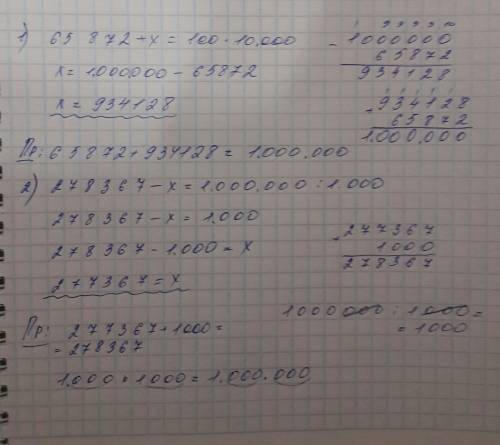 1) 65 872 + x = 100 · 10,000
x = 1.000,000 - 65872
x = 934128
- 1000000
65872
934128
+ 934128
65872
1.000,000
Пр: 65872 + 934128 = 1.000,000
2) 278367 - x = 1.000,000 : 1.000
278367 - x = 1.000
278367 - 1.000 = x
277367 = x
277367
1000
278367
Пр: 277367 + 1000 =
= 278367
1000000 : 1000 =
= 1000
1.000 · 1000 = 1.000.000